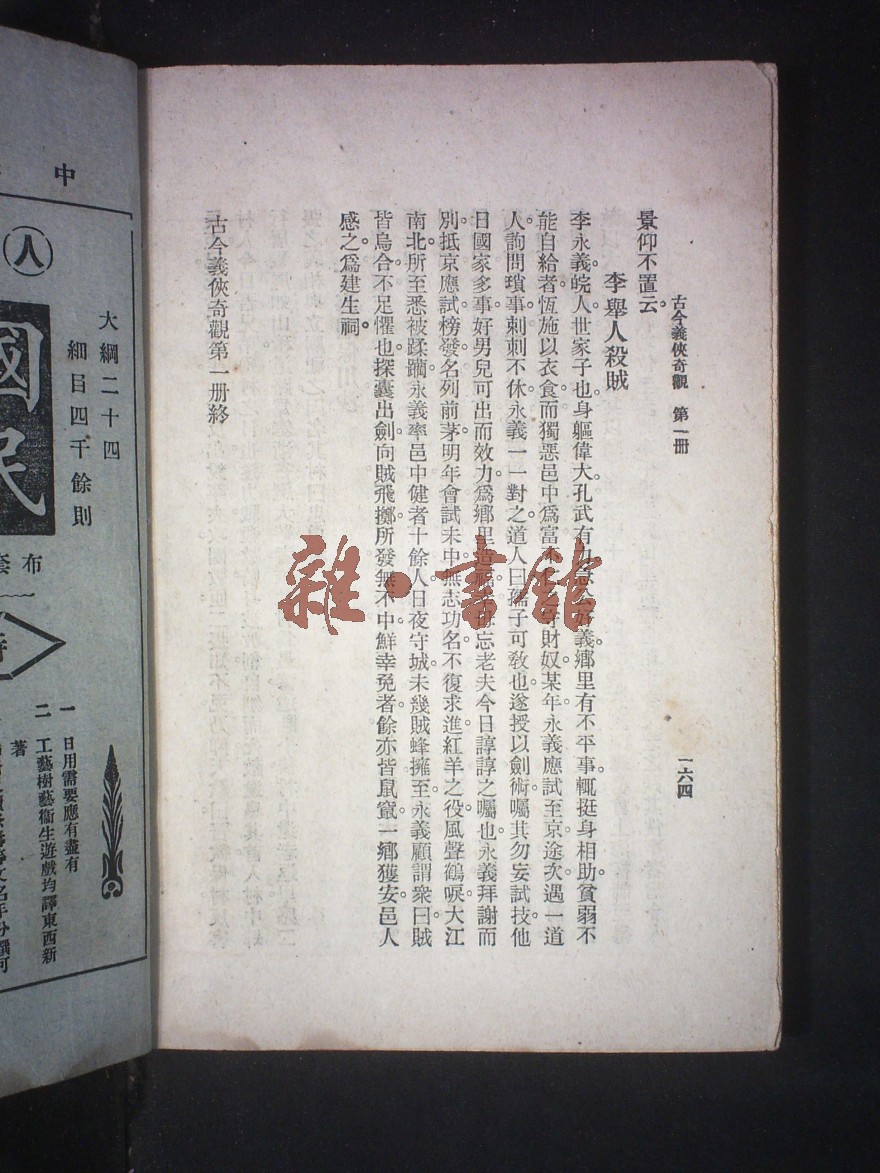 古今義俠奇觀　第一册
一六四
景仰不置云。
李舉人殺賊
李永義。皖人。世家子也。身軀偉大。孔武有力。義。鄉里有不平事。輒挺身相助。貧弱不
能自給者。恆施以衣食。而獨惡邑中爲富不財奴。某年。永義應試至京。途次遇一道
人。詢問瑣事。刺刺不休。永義一一對之。道人曰。孺子可敎也。遂授以劍術。囑其勿妄試技。他
日國家多事。好男兒可出而效力。爲鄉里造忘老夫今日諄諄之囑也。永義拜謝而
別。抵京應試。榜發。名列前茅。明年會試未中。無志功名。不復求進。紅羊之役。風聲鶴唳。大江
南北。所至悉被蹂躪。永義率邑中健者十餘人。日夜守城。未幾賊蜂擁至。永義顧謂衆曰。賊
皆烏合。不足懼也。探囊出劍。向賊飛擲。所發無不中。鮮幸免者。餘亦皆鼠竄。一鄉獲安。邑人
感之。爲建生祠。
古今義俠奇觀第一册終
雜·書館
中
人
國民
大綱二十四
細目四千餘則
布套
一　日用需要應有盡有
二　工藝樹藝衞生遊戲均譯東西新
著